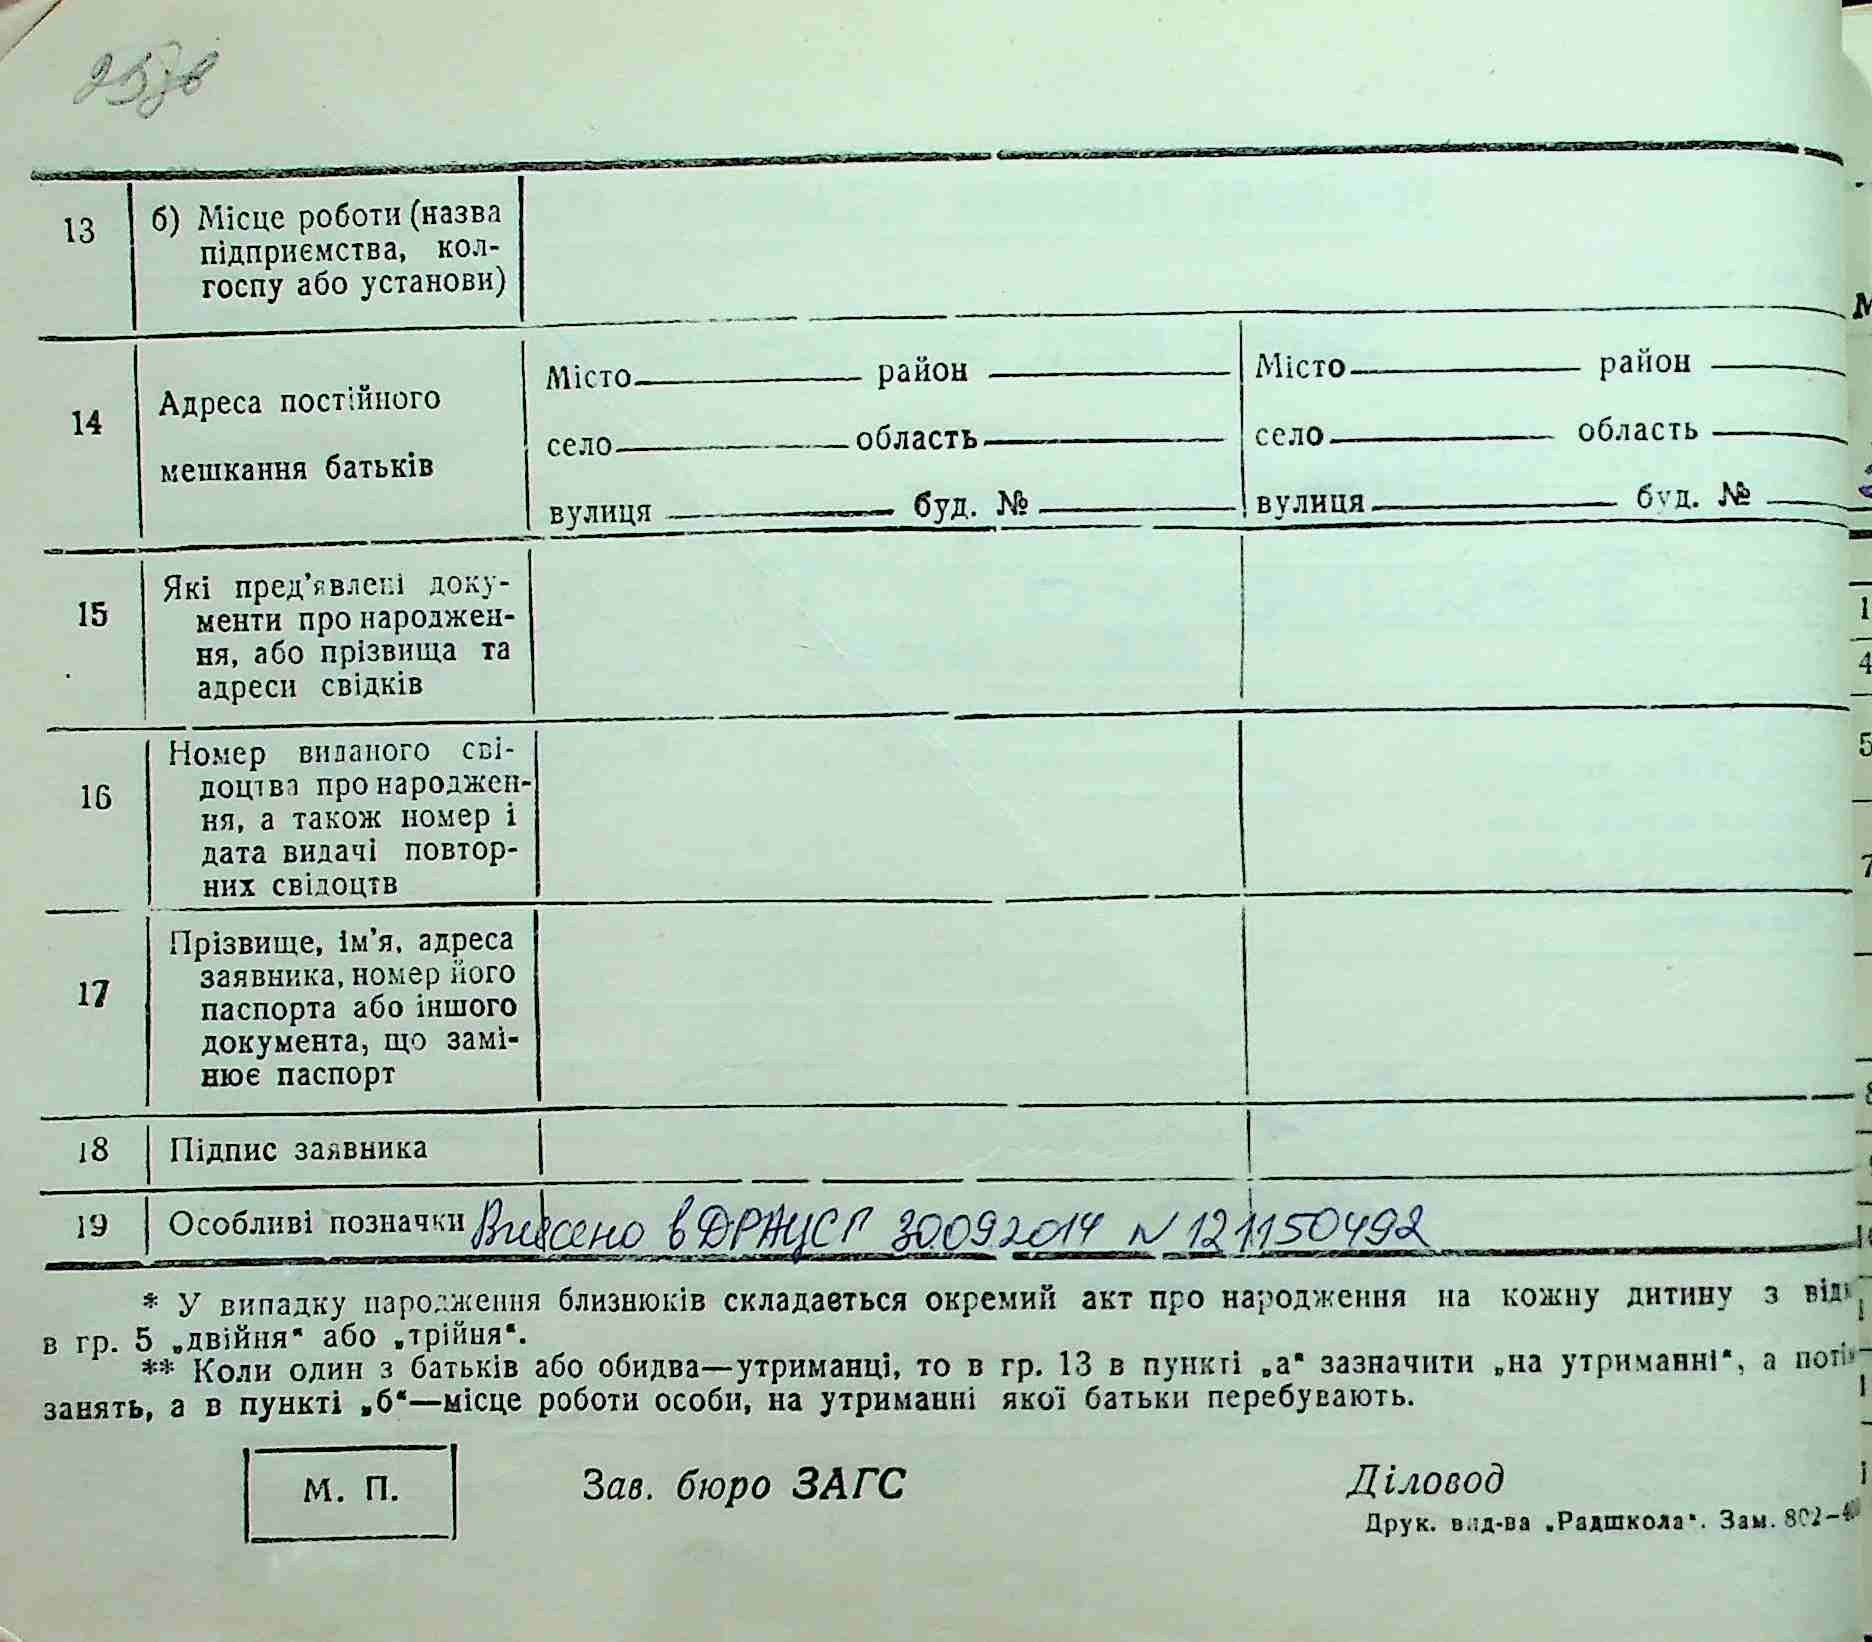 13 б) Місце роботи (назва
підприємства, кол-
госпу або установи)
14 Адреса постійного
мешкання батьків
Місто район
село область
вулиця буд. №
Місто район
село область
вулиця буд. №
15 Які пред’явлені доку-
менти про народжен-
ня, або прізвища та
адреси свідків
16 Номер виданого сві-
доцтва про народжен-
ня, а також номер і
дата видачі повтор-
них свідоцтв
17 Прізвище, ім’я, адреса
заявника, номер його
паспорта або іншого
документа, що замі-
нює паспорт
18 Підпис заявника
19 Особливі позначки Внесено в ДРАЦСГ 30092014 N 121150492
* У випадку народження близнюків складається окремий акт про народження на кожну дитину з
в гр. 5 „двійня“ або „трійня“.
** Коли один з батьків або обидва—утриманці, то в гр. 13 в пункті „а“ зазначити „на утриманні“, а
занять, а в пункті „б“—місце роботи особи, на утриманні якої батьки перебувають.
М. П. Зав. бюро ЗАГС Діловод
Друк. вид-ва „Радшкола“. Зам. 802—